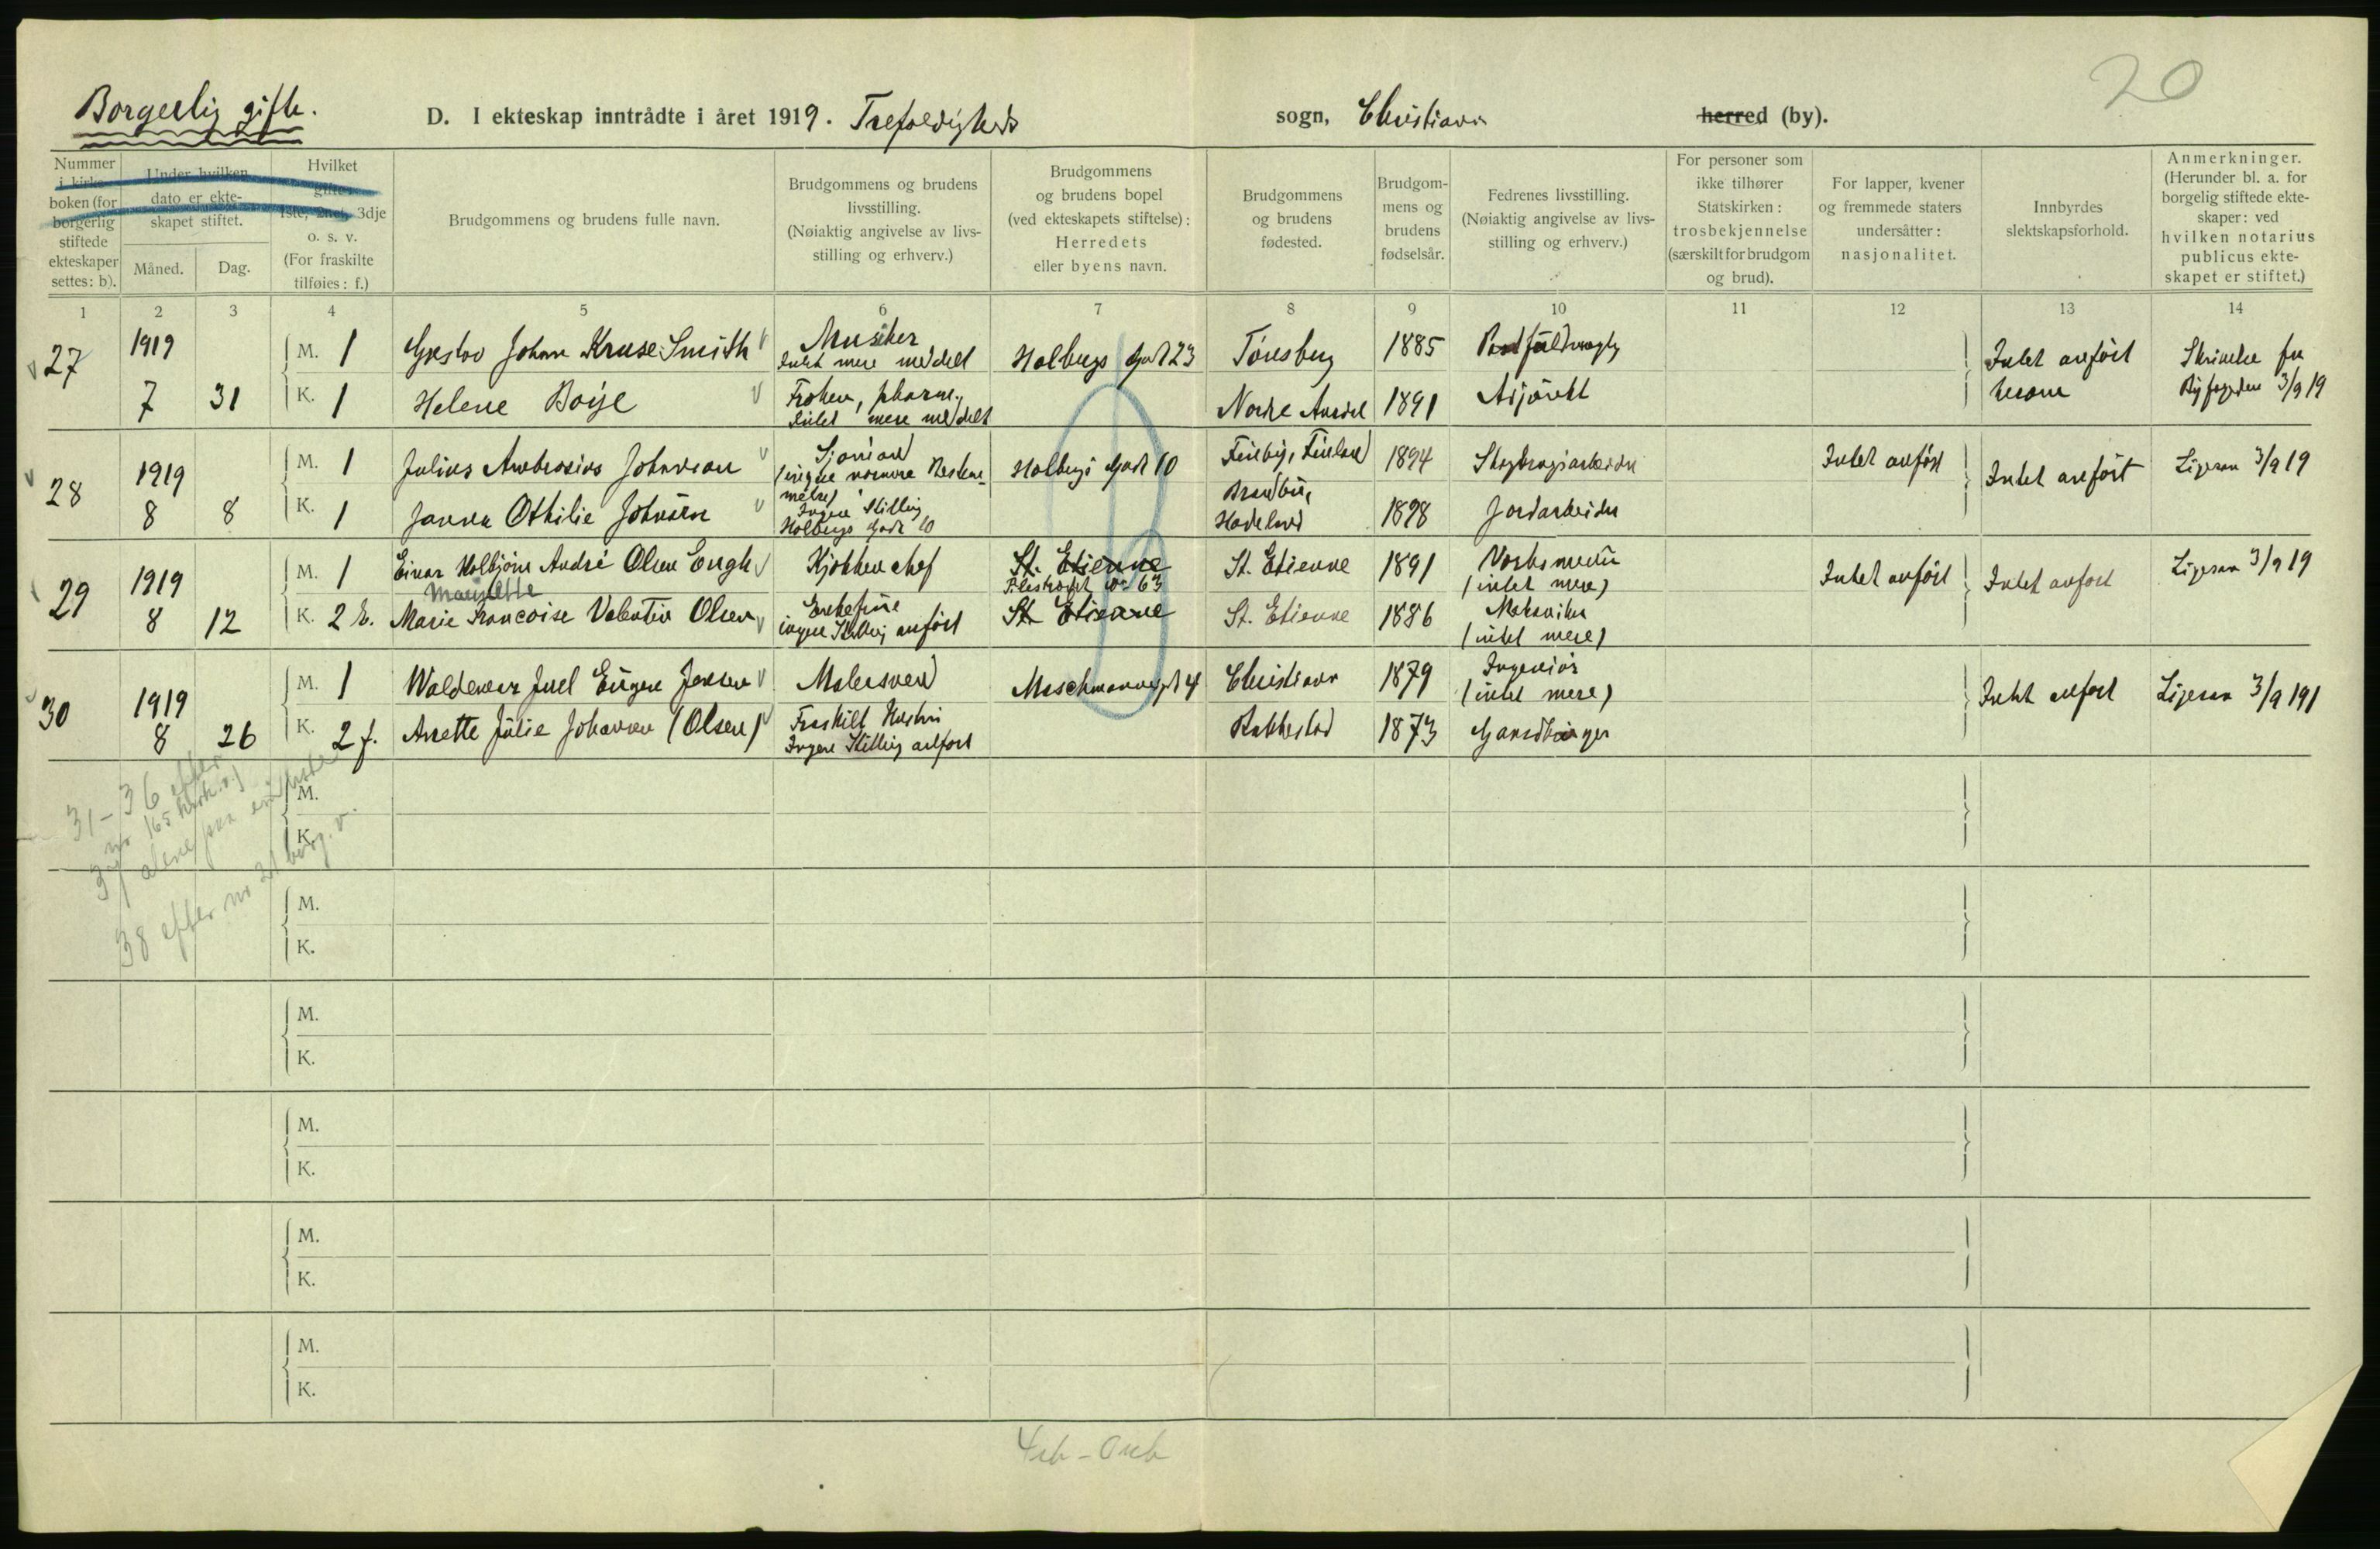 20
Borgerlig gifte.
D. I ekteskap inntrådte i året 1919. Trefoldigheds sogn, Christiania herred (by).
Nummer i kirkeboken (for borgerlig stiftede ekteskaper settes: b).
Under hvilken dato er ekteskapet stiftet.
Måned.
Dag.
Hvilket gifte: 1ste, 2net, 3dje o. s. v. (For fraskilte tilføies: f.)
Brudgommens og brudens fulle navn.
Brudgommens og brudens livsstilling. (Nøiaktig angivelse av livsstilling og erhverv.)
Brudgommens og brudens bopel (ved ekteskapets stiftelse): Herredets eller byens navn.
Brudgommens og brudens fødested.
Brudgommens og brudens fødselsår.
Fedrenes livsstilling. (Nøiaktig angivelse av livsstilling og erhverv.)
For personer som ikke tilhører Statskirken: trosbekjennelse (særskilt for brudgom og brud).
For lapper, kvener og fremmede staters undersåtter: nasjonalitet.
Innbyrdes slektskapsforhold.
Anmerkninger. (Herunder bl. a. for borgelig stiftede ekteskaper: ved hvilken notarius publicus ekteskapet er stiftet.)
1 2 3 4 5 6 7 8 9 10 11 12 13 14
27 1919 M. 1 Gustav Johan Kruse Smith Musiker Intet mere meddelt Holbergs Gade 23 Tønsberg 1885 Intet anført Skrivelse fra
7 31 K. 1 Helene Boije Frøken, pharm., Intet mere meddelt Nedre 1891 Byfogden 3/9 19
28 1919 M. 1 Julius Ambrosius Johansson Sjømand Holbergs Gade 10 Finby, Finland 1894 Intet anført Intet anført Ligesaa 3/9 19
8 8 K. 1 Janna Othilie Johnsen Ingen Stilling Holbergs Gade 10 Brandbu, Hadeland 1898 Jordarbeider
29 1919 M. 1 Einar Kolbjørn André Olsen Engh Kjøkkenchef St. Etienne Pilestrædet No 63 St. Etienne 1891 (intet mere) Intet anført Intet anført Ligesaa 3/9 19
8 12 K. 2 E. Marie Francoise Valentin Olsen Enkefrue ingen Stilling anført St. Etienne St. Etienne 1886 Mekaniker (intet mere)
30 1919 M. 1 Waldemar Juel Eugen Jensen Malersvend Maschmannsgt 4 Christiania 1879 Ingeniør (intet mere) Intet anført Ligesaa 3/9 191
8 26 K. 2 f. Anette Julie Johansen (Olsen) Fraskilt Hustru Ingen Stilling anført Rakkestad 1873 Gaardbruger
31-36 efter
no 165
37 alene paa
38 efter no 21 borg. v.
M.
K.
M.
K.
M.
K.
M.
K.
M.
K.
M.
K.